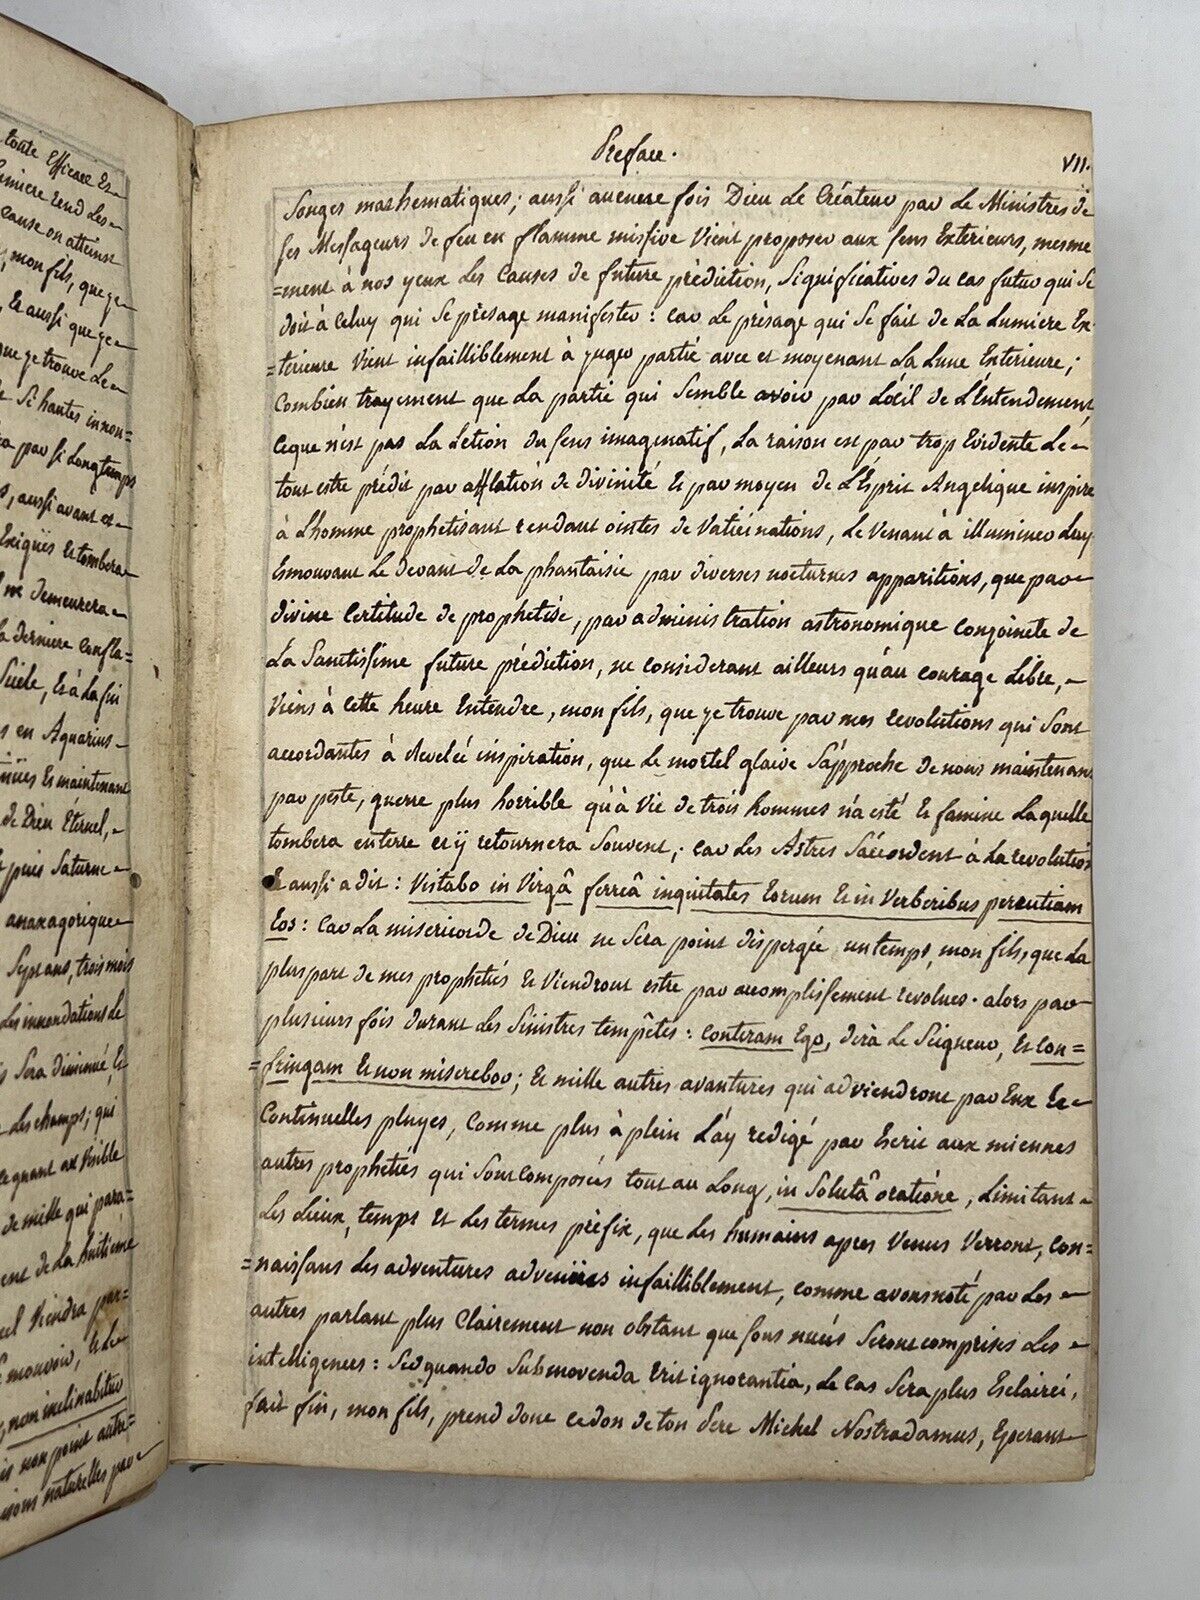 toute Efficace Et
lumiere rend les
cause on atteint
, mon fils, que ye
, Et aussi que ye
que ye trouve Le
Si hautes innon=
par si Longtemps
, aussi avant et
Exiguës Et tombera
ne demeurera
La derniere Confla=
Siécle, Et à La fin
en Aquarius
Et maintenant
de Dieu Éternel,
puis Saturne
anaxagorique
Sept ans, trois mois
Les innondations de
Sera diminué, Et
Les champs; qui
quant au Visible
de mille qui para=
de La huitiéme
Viendra par=
mouvoir, Et Le
non inclinabitur
non point autre=
naturelles par
Preface.
VII.
Songes mathematiques; aussi aucune fois Dieu Le Créateur par Le Ministres de
ses Messageurs de feu en flamme missive Vient proposer aux sens Exterieurs, mesme
=ment à nos yeux Les Causes de future prédiction, Significatives du cas futur qui Se
doit à Celuy qui Se présage manifester: Car Le présage qui Se fait de La Lumiere Ex-
=térieure Vient infailliblement à juger partie avec et moyenant La Lune Exterieure;
Combien trayement que La partie qui Semble avoir par L'œil de L'Entendement
Ceque n'est pas La Letion du sens imaginatif, La raison est par trop Evidente Le
tout estre prédit par afflation de divinité Et par moyen de L'Esprit Angelique inspire
à L'homme prophetisant rendant ointes de Vaticinations, Le Venant à illuminer Luy
Esmouvant Le devant de La phantaisie par diverses nocturnes apparitions, que par
divine Certitude de prophetise, par administration astronomique Conjoincte de
La Sanctissime future prédiction, ne Considerant ailleurs qu'au Courage Libre,
Viens à Cette heure Entendre, mon fils, que ye trouve par mes revolutions qui Sont
accordantes à revelée inspiration, que Le mortel glaive S'approche de nous maintenant
par peste, guerre plus horrible qu'à Vie de trois hommes n'a esté Et famine Laquelle
tombera en terre et ÿ retournera Souvent; Car Les Astres S'accordent à La revolution
Et aussi a dit: Visitabo in Virgâ ferreâ iniquitates Eorum Et in Verberibus percutiam
Eos: Car La misericorde de Dieu ne Sera point dispergée un temps, mon fils, que La
pluspart de mes propheties Et Viendront estre par accomplissement revolues. alors par
plusieurs fois durant Les Sinistres tempêtes: Conteram Ego, dira Le Seigneur, Et Con=
=fringam Et non miserebor; Et mille autres avantures qui adviendront par Eux Et
Continuelles pluyes, Comme plus à plein L'ay redigé par Ecrit aux miennes
autres propheties qui Sont Composées tout au Long, in Solutâ oratione, Limitant
Les Lieux, temps Et Les termes préfix, que Les humains apres Venus Verront, Con=
=naissans Les adventures adveniies infailliblement, Comme avons noté par Les
autres parlant plus Clairement non obstant que sous nuées Seront Comprises Les
intelligences: Sed quando Submovenda Erit ignorantia, Le Cas Sera plus Esclairci,
fait fin, mon fils, prend donc Ce don de ton Pere Michel Nostradamus, Esperant